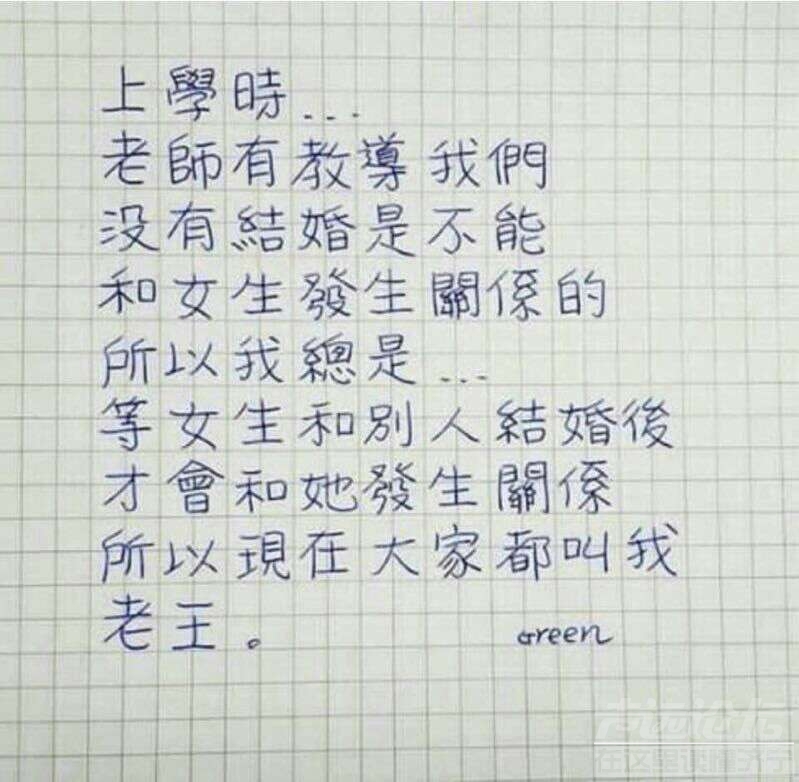 上學時...
老師有教導我們
没有結婚是不能
和女生發生關係的
所以我總是...
等女生和別人結婚後
才會和她發生關係
所以現在大家都叫我
老王。 Green